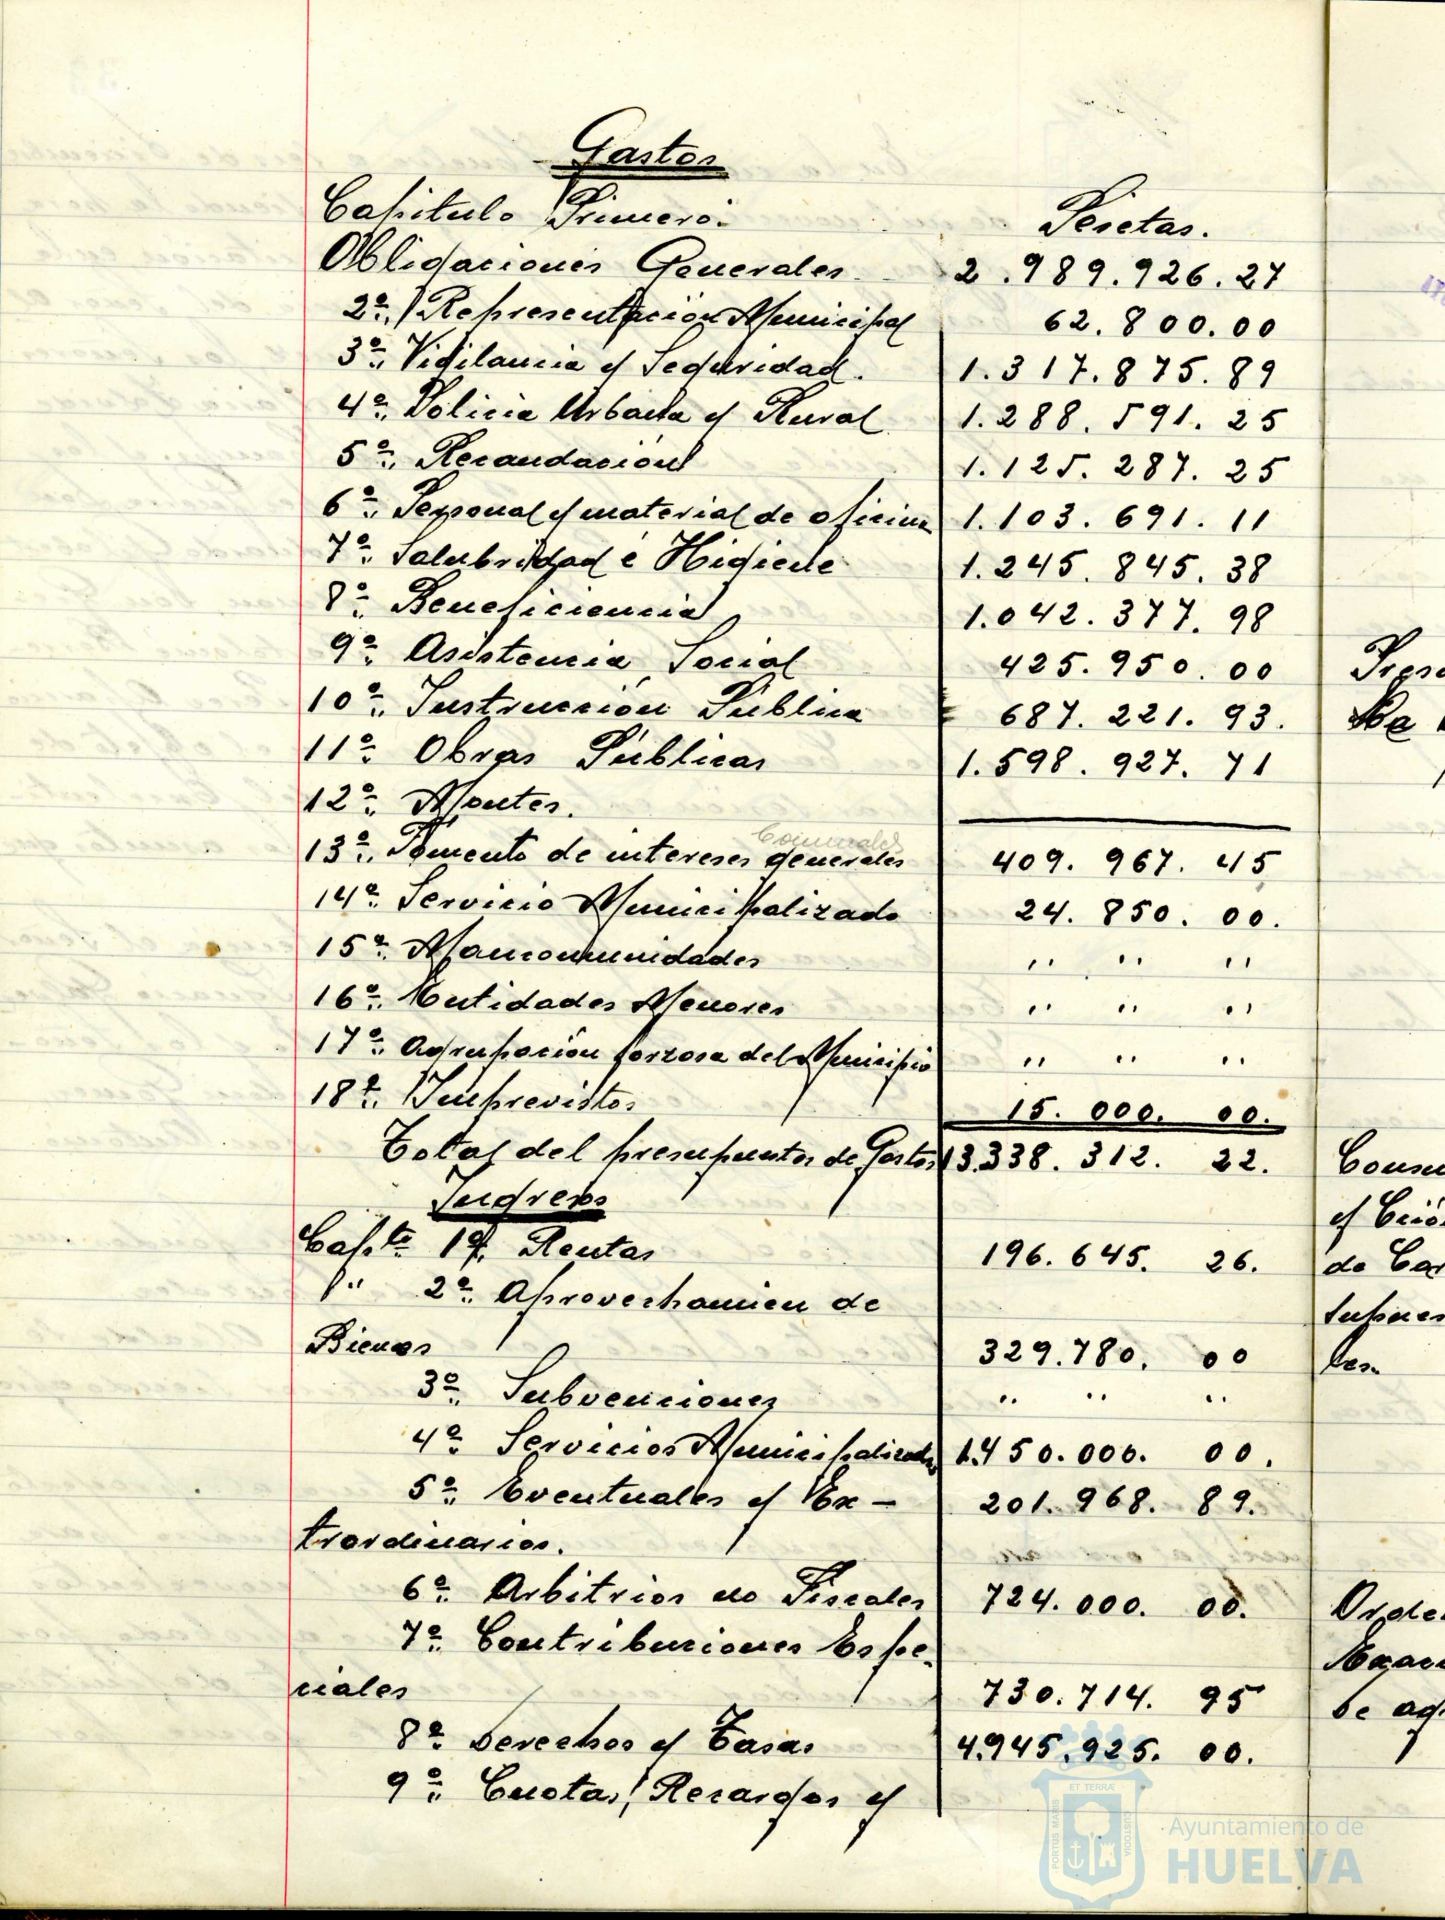 Gastos
Capitulo Primero. Pesetas.
Obligaciones Generales 2.989.926.27
2º. Representación Municipal 62.800.00
3º. Vigilancia y Seguridad. 1.317.875.89
4º. Policia Urbana y Rural 1.288.591.25
5º. Recaudación 1.125.287.25
6º. Personal y material de oficina 1.103.691.11
7º. Salubridad é Higiene 1.245.845.38
8º. Beneficiencia 1.042.377.98
9º. Asistencia Social 425.950.00
10º. Instrucción Pública 687.221.93.
11º. Obras Públicas 1.598.927.71
12º. Montes.
Comunales
13º. Fomento de intereses generales 409.967.45
14º. Servicio Municipalizado 24.850.00.
15º. Mancomunidades " " "
16º. Entidades Menores " " "
17º. Agrupación forzosa del Municipio " " "
18º. Imprevistos 15.000.00.
Total del presupuestos de Gastos 13.338.312.22.
Ingresos
Capto. 1º. Rentas 196.645.26.
" 2º. Aprovechamien de
Bienes 329.780.00
3º. Subvenciones " " "
4º. Servicios Municipalizados 1.450.000.00.
5º. Eventuales y Ex-
traordinarios. 201.968.89.
6º. Arbitrios no Fiscales 724.000.00.
7º. Contribuciones Espe-
ciales 730.714.95
8º. Derechos y Tasas 4.945.925.00.
9º. Cuotas, Recargos y
Presu
y Ció
de Car
supues
les.
Orden
Exacc
PORTUS MARIS ET TERRÆ CUSTODIA
Ayuntamiento de
HUELVA